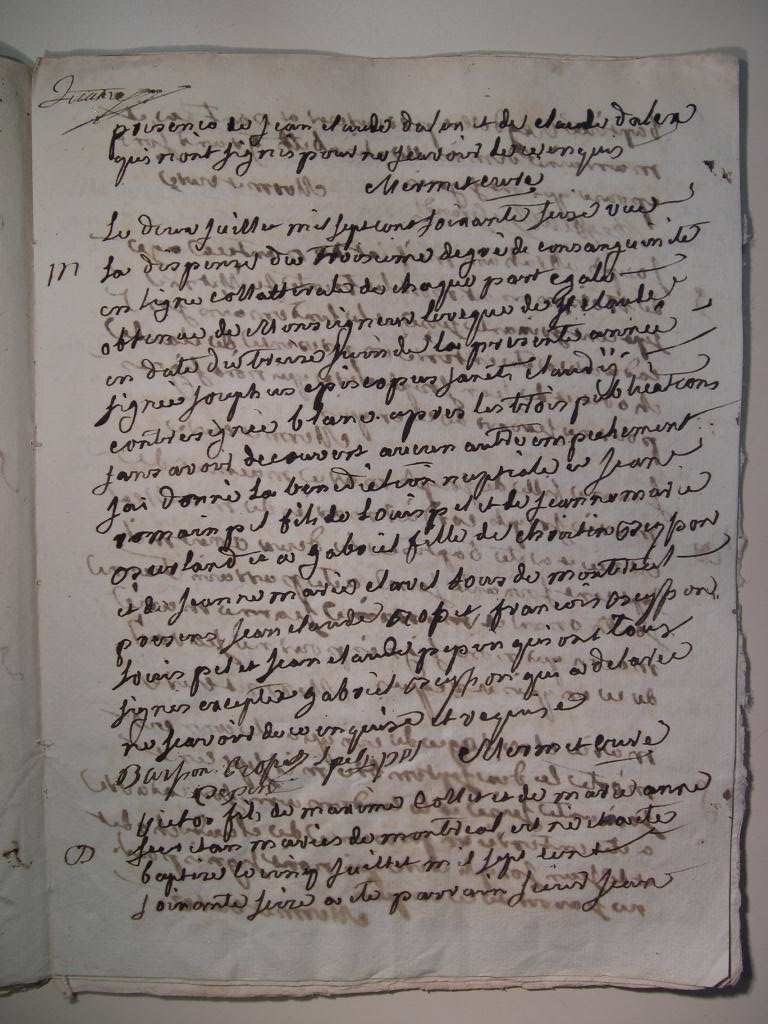 presence de jean claude dalen et de claude dalen
qui n'ont signés pour ne sçavoir de ce enquis
Mermet curé
Le deux juillet mil sept cent soixante seize vue
m
la dispense du troisieme degré de consanguinité
en ligne collatterale de chaque part egale
obtenue de Monseigneur leveque de st claude
en date du treize juin de la presente année
signée josephus episcopus sancti claudii
contresignée blanc apres les trois publications
sans avoir decouvert aucun autre empechement
jai donné la benediction nuptiale a jean
romain pel fils de louis pel et de jeanne marie
et a gabriel fille de
et de jeanne marie clavel tous de montreal
presens jean claude françois
louis pel et jean claude pepin qui ont tous
signes excepté gabriel qui a declaré
ne scavoir de ce enquise et requise
L pel pel Mermet curé
pepin
victor fils de maxime Collet et de marie anne
maries de montreal est né et a eté
B
baptizé le cinq juillet mil sept cent
soixante seize a ete parrain sieur jean